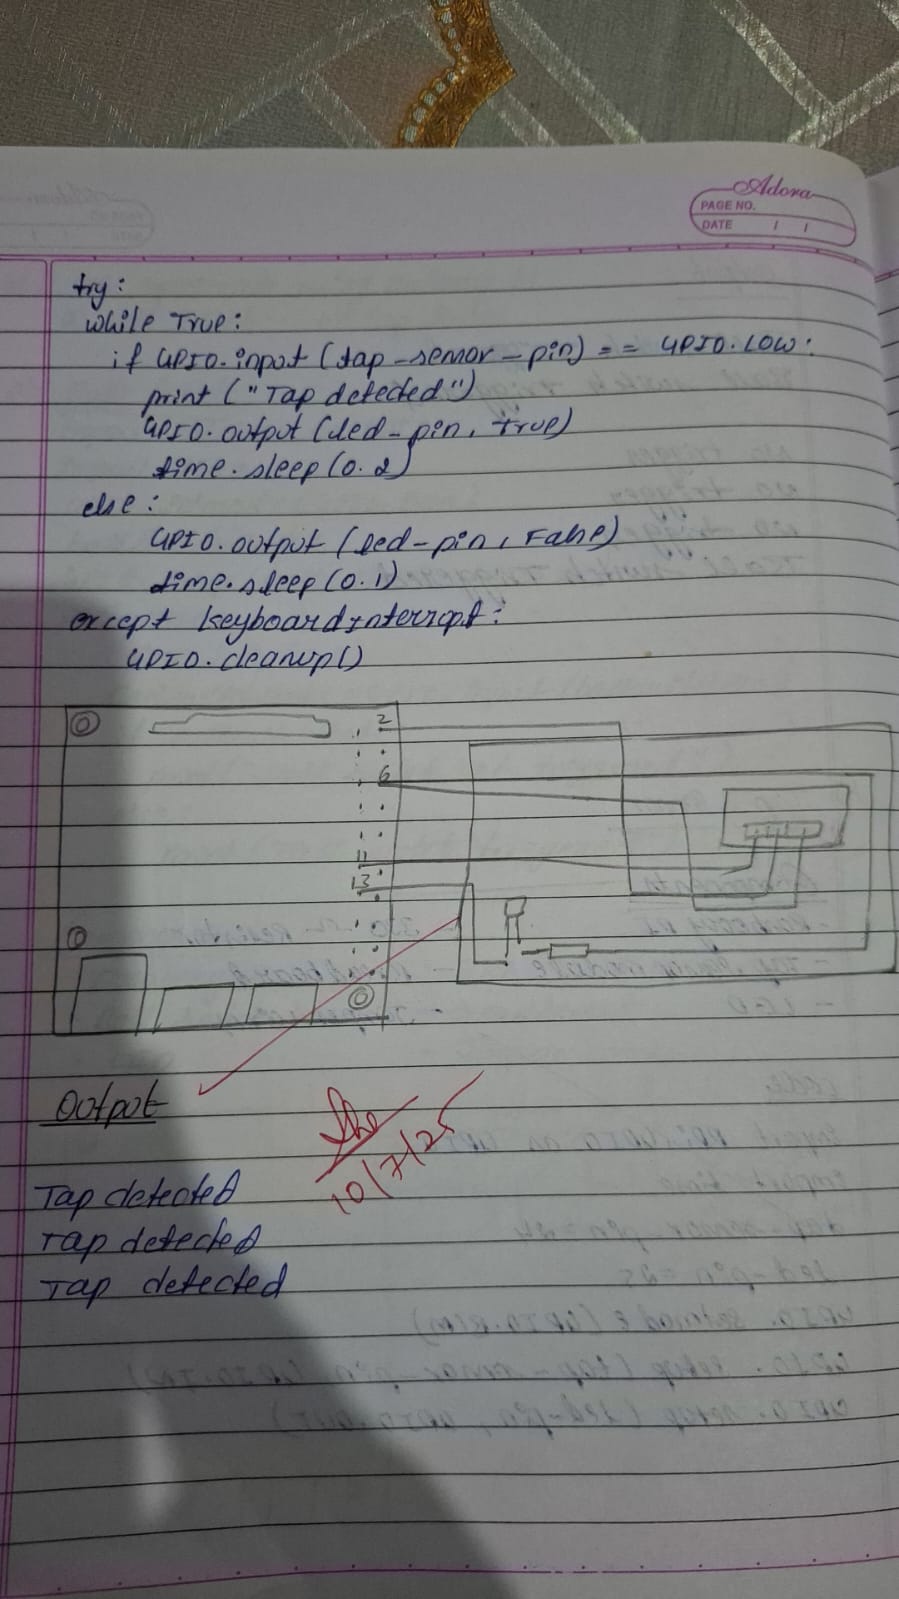 Adora
PAGE NO.
DATE / /
try:
while True:
if GPIO.input (tap-sensor-pin) == GPIO.LOW:
print ("Tap detected")
GPIO.output (led-pin, True)
time.sleep(0.2)
else:
GPIO.output (led-pin, False)
time.sleep(0.1)
except KeyboardInterrupt:
GPIO.cleanup()
2
6
11
13
Output
10/7/25
Tap detected
Tap detected
Tap detected